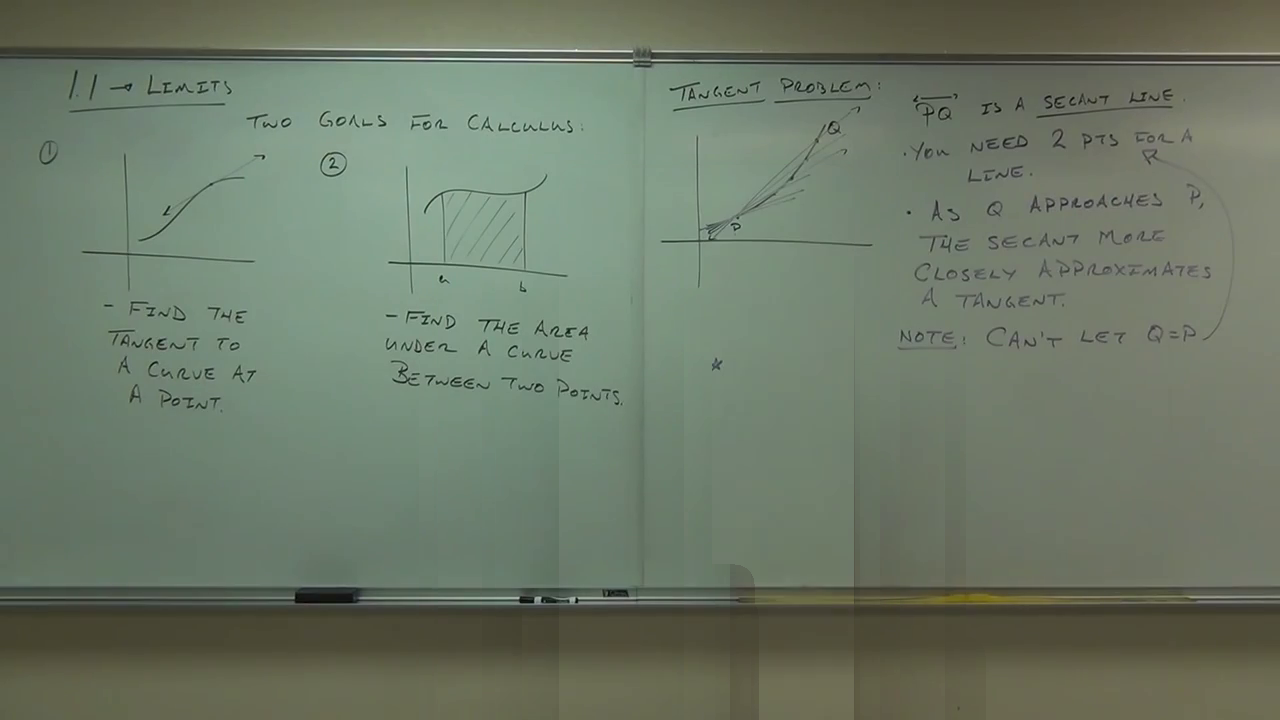 1.1 → LIMITS
TWO GOALS FOR CALCULUS:
①
②
a b
- FIND THE
TANGENT TO
A CURVE AT
A POINT.
- FIND THE AREA
UNDER A CURVE
BETWEEN TWO POINTS.
TANGENT PROBLEM:
Q
P
PQ IS A SECANT LINE.
• YOU NEED 2 PTS FOR A
LINE.
• AS Q APPROACHES P,
THE SECANT MORE
CLOSELY APPROXIMATES
A TANGENT.
NOTE: CAN'T LET Q=P
*